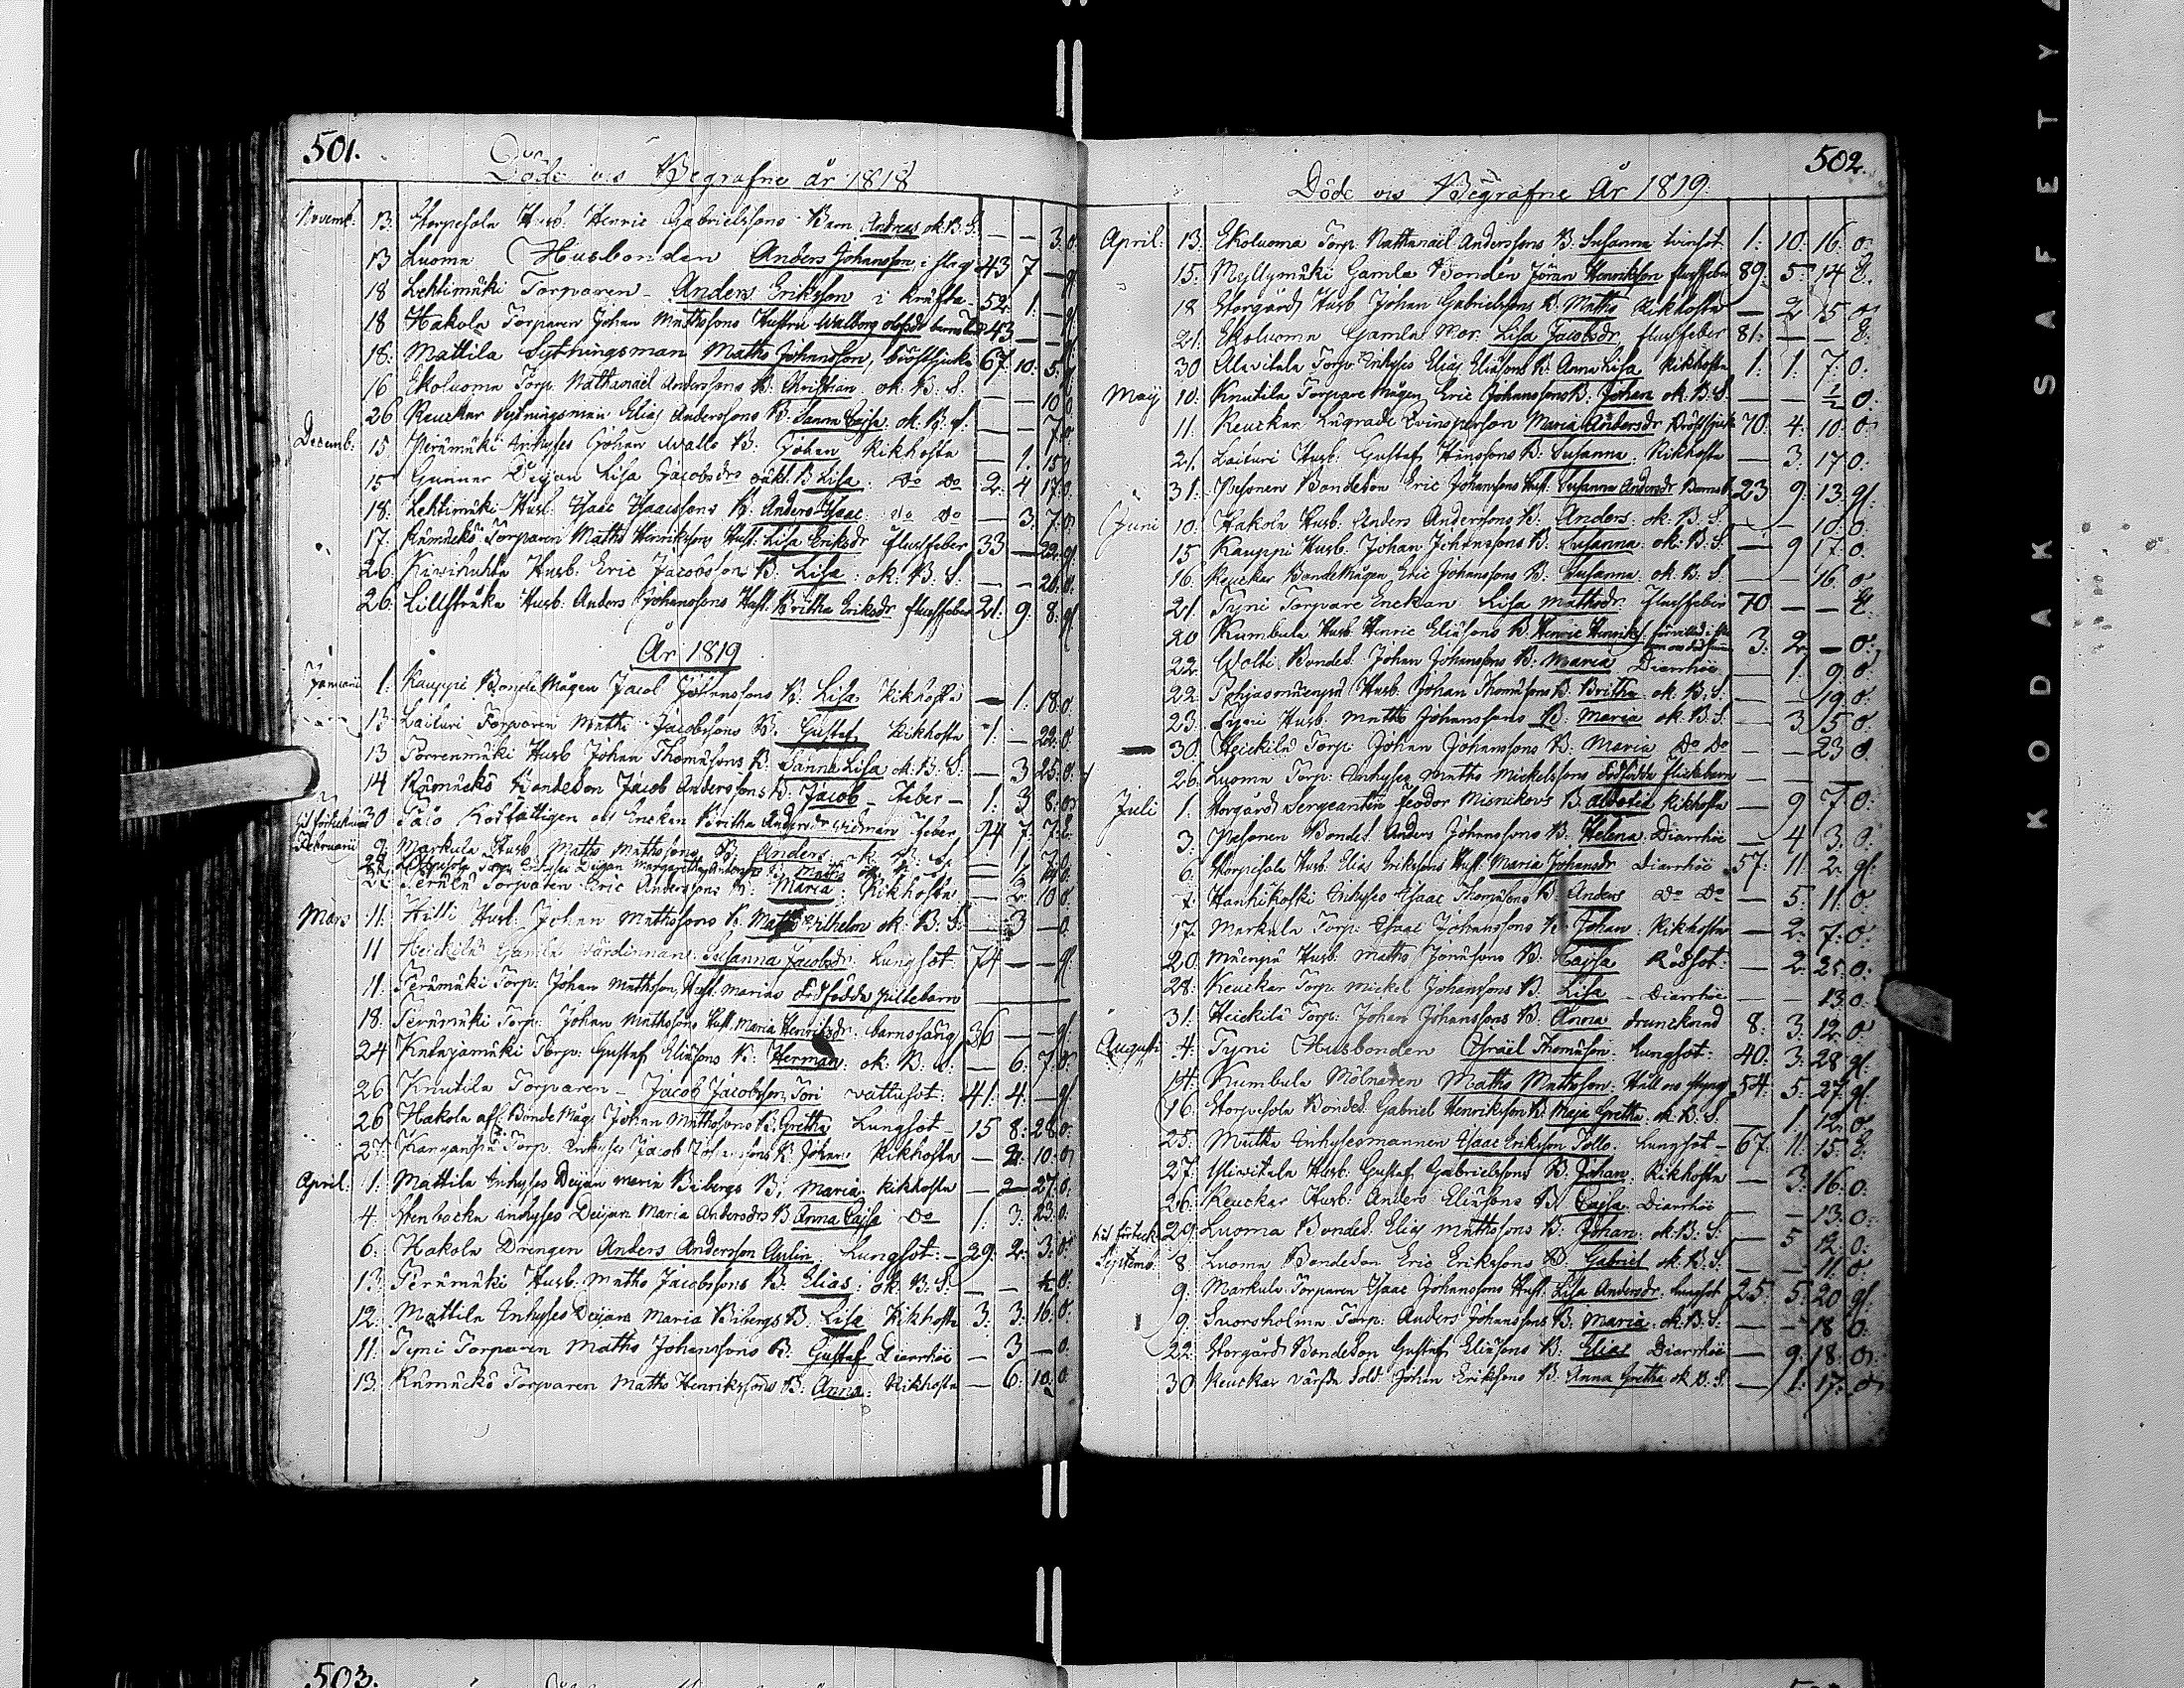 501.
Döde och Begrafne år 1818
Novemb: 13. Storpesola Husb. Henric Gabrielssons Barn Andreas ok: B. S. — — 3. o.
13 Luoma Husbonden Anders Johansson, i slag 43 7 — gf
18 Lehtimäki Torparen - Anders Eriksson i kräfta - 52. 1. — gf
18 Hakola Torparen Johan Mathssons Hustru Walborg olofsdr barnsbörd 43 — — gf
18. Mattila Sytningsman Maths Johansson, bröstsjuka 67. 10. 5. gf
16 Ekoluoma Torp. Nathanaël Anderssons B. Christian ok. B. S. — — 10 o
26 Reuckar Sytningsman Elias Anderssons B. Sanna Cajsa ok. B. S. — — 7. o
Decemb: 15 Perämäki Inhyses Johan Walls B. Johan Kikhosta — 1. 15 o
15 Gunnar Deijan Lisa Jacobsdrs oäkt. B Lisa. Do Do 2. 4 17. o.
18. Lehtimäki Husb. Isaac Isaacssons B. Anders Isaac. Do Do — 3. 7. o
17. Rämäkö Torparen Maths Henrikssons Hust. Lisa Eriksdr Flussfeber 33 — 22. gf
26. Kivikuhta Husb. Eric Jacobsson B. Lisa. ok. B. S. — — 26. o.
26. Lillstråka Husb. Anders Johanssons Hust. Britha Eriksdr flussfeber 21. 9. 8. gf
År 1819
Januarii 1. Kauppi Bonde Mågen Jacob Johanssons B. Lisa. Kikhosta — 1. 18. o.
13. Laituri Torparen Maths Jacobssons B. Gustaf Kikhosta 1. — 22. o.
13 Porrenmäki Husb Johan Thomassons B. Sanna Lisa ok. B. S. — 3 25. o.
14 Rämäkö Bondeson Jacob Anderssons B. Jacob - Feber - 1. 3 8. o
30 Salo Rotfattigen och Enckan Britha Andersdr Widman Feber 94 7. 7. E.
Februarii 9. Markula Husb. Maths Mathssons B. Anders ok. B. S. — 1. 7. o
22. Torp. Inhyses Deijan Margareta B. Maths ok. B. S.
22. Perälä Torparen Eric Anderssons B. Maria. Kikhosta — 2. 10 o.
Mars 11. Hilli Husb. Johan Mathssons B. Maths Wilhelm ok. B. S. — 3 — o.
11 Heickilä Gamla Värdinnan Susanna Jacobsdr. Lungsot. 74 — — gf.
11. Perämäki Torp. Johan Mathsson, Hust. Marias dödfödda gillebarn
18. Perämäki Torp. Johan Mathssons Hust. Maria Henriksdr. barnssäng 36 — — gf
24 Torp. Gustaf Eliassons B. Herman. ok. B. S. — 6. 7. o.
26 Knutila Torparen - Jacob Jacobsson Tori Vattusot. 41. 4. — gf
26 Hakola afl. Bonde Måg. Johan Mathssons B. Gretha Lungsot - 15 8. 28. o.
27. Kangaspää Torp. Inhyses Jacob B. Johan Kikhosta — 2. 10. o
April. 1. Mattila Inhyses Deijan Maria Bibergs B. Maria. Kikhosta — 2 27. o.
4. Stenbacka inhyses Deijan Maria Andersdrs B Anna Cajsa Do 1. 3. 23. o
6. Hakola Drengen Anders Andersson Aulin. Lungsot. - 29. 2. 3. o.
13. Perämäki Husb. Maths Jacobssons B. Elias: ok. B. S. — — ½ o.
12. Mattila Inhyses Deijan Maria Bibergs B. Lisa Kikhosta 3. 3. 16. o.
11. Tyni Torparen Maths Johanssons B. Gustaf Diarrhöe — 3 — o.
13. Rämäkö Torparen Maths Henrikssons B. Anna. Kikhosta — 6. 10. o
502.
Döde och Begrafne År 1819.
April. 13. Ekoluoma Torp. Nathanaël Anderssons B. Susanna tvinsot. 1. 10. 16. o.
15. Myllymäki Gamla Bonden Jöran Henriksson flussfeber 89. 5. 14 E.
18 Storgård Husb Johan Gabrielssons B. Maths Kikhosta — 2 15. o
21. Ekoluoma Gamla Mor. Lisa Jacobsdr flussfeber 81. — — E.
30 Alavitala Torp. Inhyses Elias Eliassons B. Anna Lisa Kikhosta 1. 1. 7. o.
May 10. Knutila Torpare Mågen Eric Johanssons B. Johan ok. B. S. — — ½ o.
11. Reuckar Lägrade Qvinsperson Maria Andersdr Bröstsjuk 70. 4. 10. o.
21. Laituri Husb. Gustaf Hanssons B. Susanna. Kikhosta — 3. 17 o.
31. Pesonen Bondeson Eric Johanssons Hust. Susanna Andersdr Barnsb. 23 9. 13. gf.
Juni 10. Hakola Husb. Anders Anderssons B. Anders. ok. B. S. — — 10. o.
15 Kauppi Husb. Johan Johanssons B. Susanna. ok. B. S. — 9 17. o.
16. Reuckar Bonde Mågen Eric Johanssons B. Susanna. ok. B. S. — — 16. o
21. Tyni Torpare Enckan Lisa Mathsdr. Flussfeber 70 — — E.
20 Kumbula Husb. Henric Eliassons B. Henric Henrikss. förvillad i 3. 2. — o.
22. Wolti Bondes. Johan Johanssons B. Maria Diarrhöe — 1. 9 o
22. Pohjasmäenpää Husb. Johan Thomassons B. Britha. ok. B. S. — — 19. o.
23. Tyni Husb. Maths Johanssons B. Maria ok. B. S. — 3 5 o.
30. Heickilä Torp. Johan Johanssons B. Maria Do Do — — 23 o.
26. Luoma Torp. Inhyses Maths Mickelssons dödfödda flickebarn
Juli 1. Storgård Sergeanten Feodor Misnikovs B. Kikhosta — 9 7 o.
3. Pesonen Bondes. Anders Johanssons B. Helena. Diarrhöe — 4 3. o.
6. Storpesola Husb. Elias Erikssons Hust. Maria Johansdr Diarrhöe 57. 11. 2. gf.
7. Hanhikoski Inhyses Isaac Thomassons B. Anders Do Do — 5. 11. o.
17. Markula Torp. Isaac Johanssons B. Johan. Kikhosta — 2. 7. o.
20. Mäenpää Husb. Maths Jonassons B. Cajsa Rödsot. — 2. 25. o.
28. Reuckar Torp. Mickel Johanssons B. Lisa - Diarrhöe — — 13. o.
31. Heickilä Torp. Johan Johanssons B. Anna drunknad 8. 3. 12. o
Augusti 4. Tyni Husbonden Israël Thomasson. Lungsot. 40. 3. 28 gf
14. Kumbula Mölnaren Maths Mathsson. Håll och styng 54. 5. 27. gf.
16. Storpesola Bondes. Gabriel Henriksson B. Maja Gretha. ok. B. S. — 1. 12. o.
25. Mutka Inhysesmannen Isaac Eriksson Tollo. Lungsot - 67. 11. 15. E.
27. Ylivitala Husb. Gustaf Gabrielssons B. Johan. Kikhosta — 3. 16. o.
26. Reuckar Husb. Anders Eliassons B. Cajsa. Diarrhöe — — 13. o.
29. Luoma Bondes. Elias Mathssons B. Johan. ok. B. S. — 5 12. o.
Septemb. 8. Luoma Bondeson Eric Erikssons B. Gabriel ok. B. S. — — 11. o.
9. Markula Torparen Isaac Johanssons Hust. Lisa Andersdr. Lungsot 25. 5. 20 gf.
9. Snorsholma Torp. Anders Johanssons B. Maria. ok. B. S. — — 18 o.
22. Storgård Bondeson Gustaf Eliassons B. Elias Diarrhöe — 9. 18. o.
30. Reuckar Värfda Sold Johan Erikssons B. Anna Gretha ok B. S. — 1. 17. o
503.
KODAK SAFETY